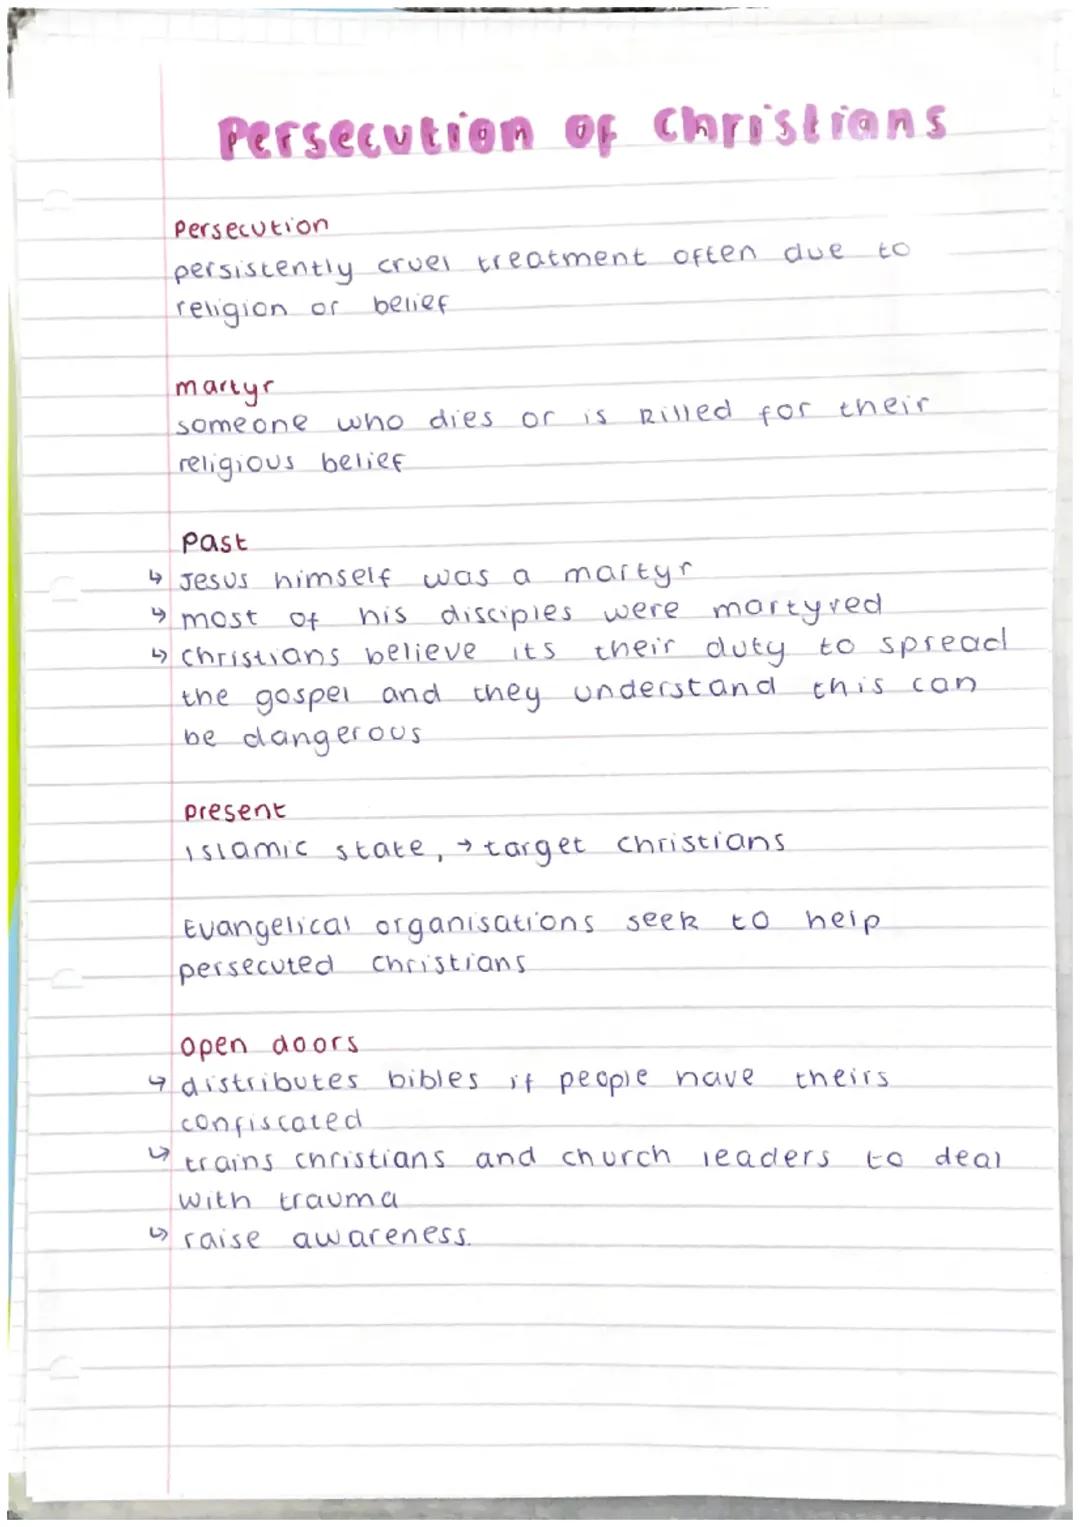 Persecution of Christians
Persecution
persistently cruel treatment often due to
religion or belief
martyr
someone who dies or is killed for their
religious belief
Past
↳ Jesus himself was a martyr
↳ most of his disciples were martyred
↳ Christians believe its their duty to spread
the gospel and they understand this can
be dangerous
present
Islamic state, → target Christians
Evangelical organisations seek to help
persecuted Christians
open doors
↳ distributes bibles if people have theirs
confiscated
↳ trains christians and church leaders to deal
with trauma
↳ raise awareness.